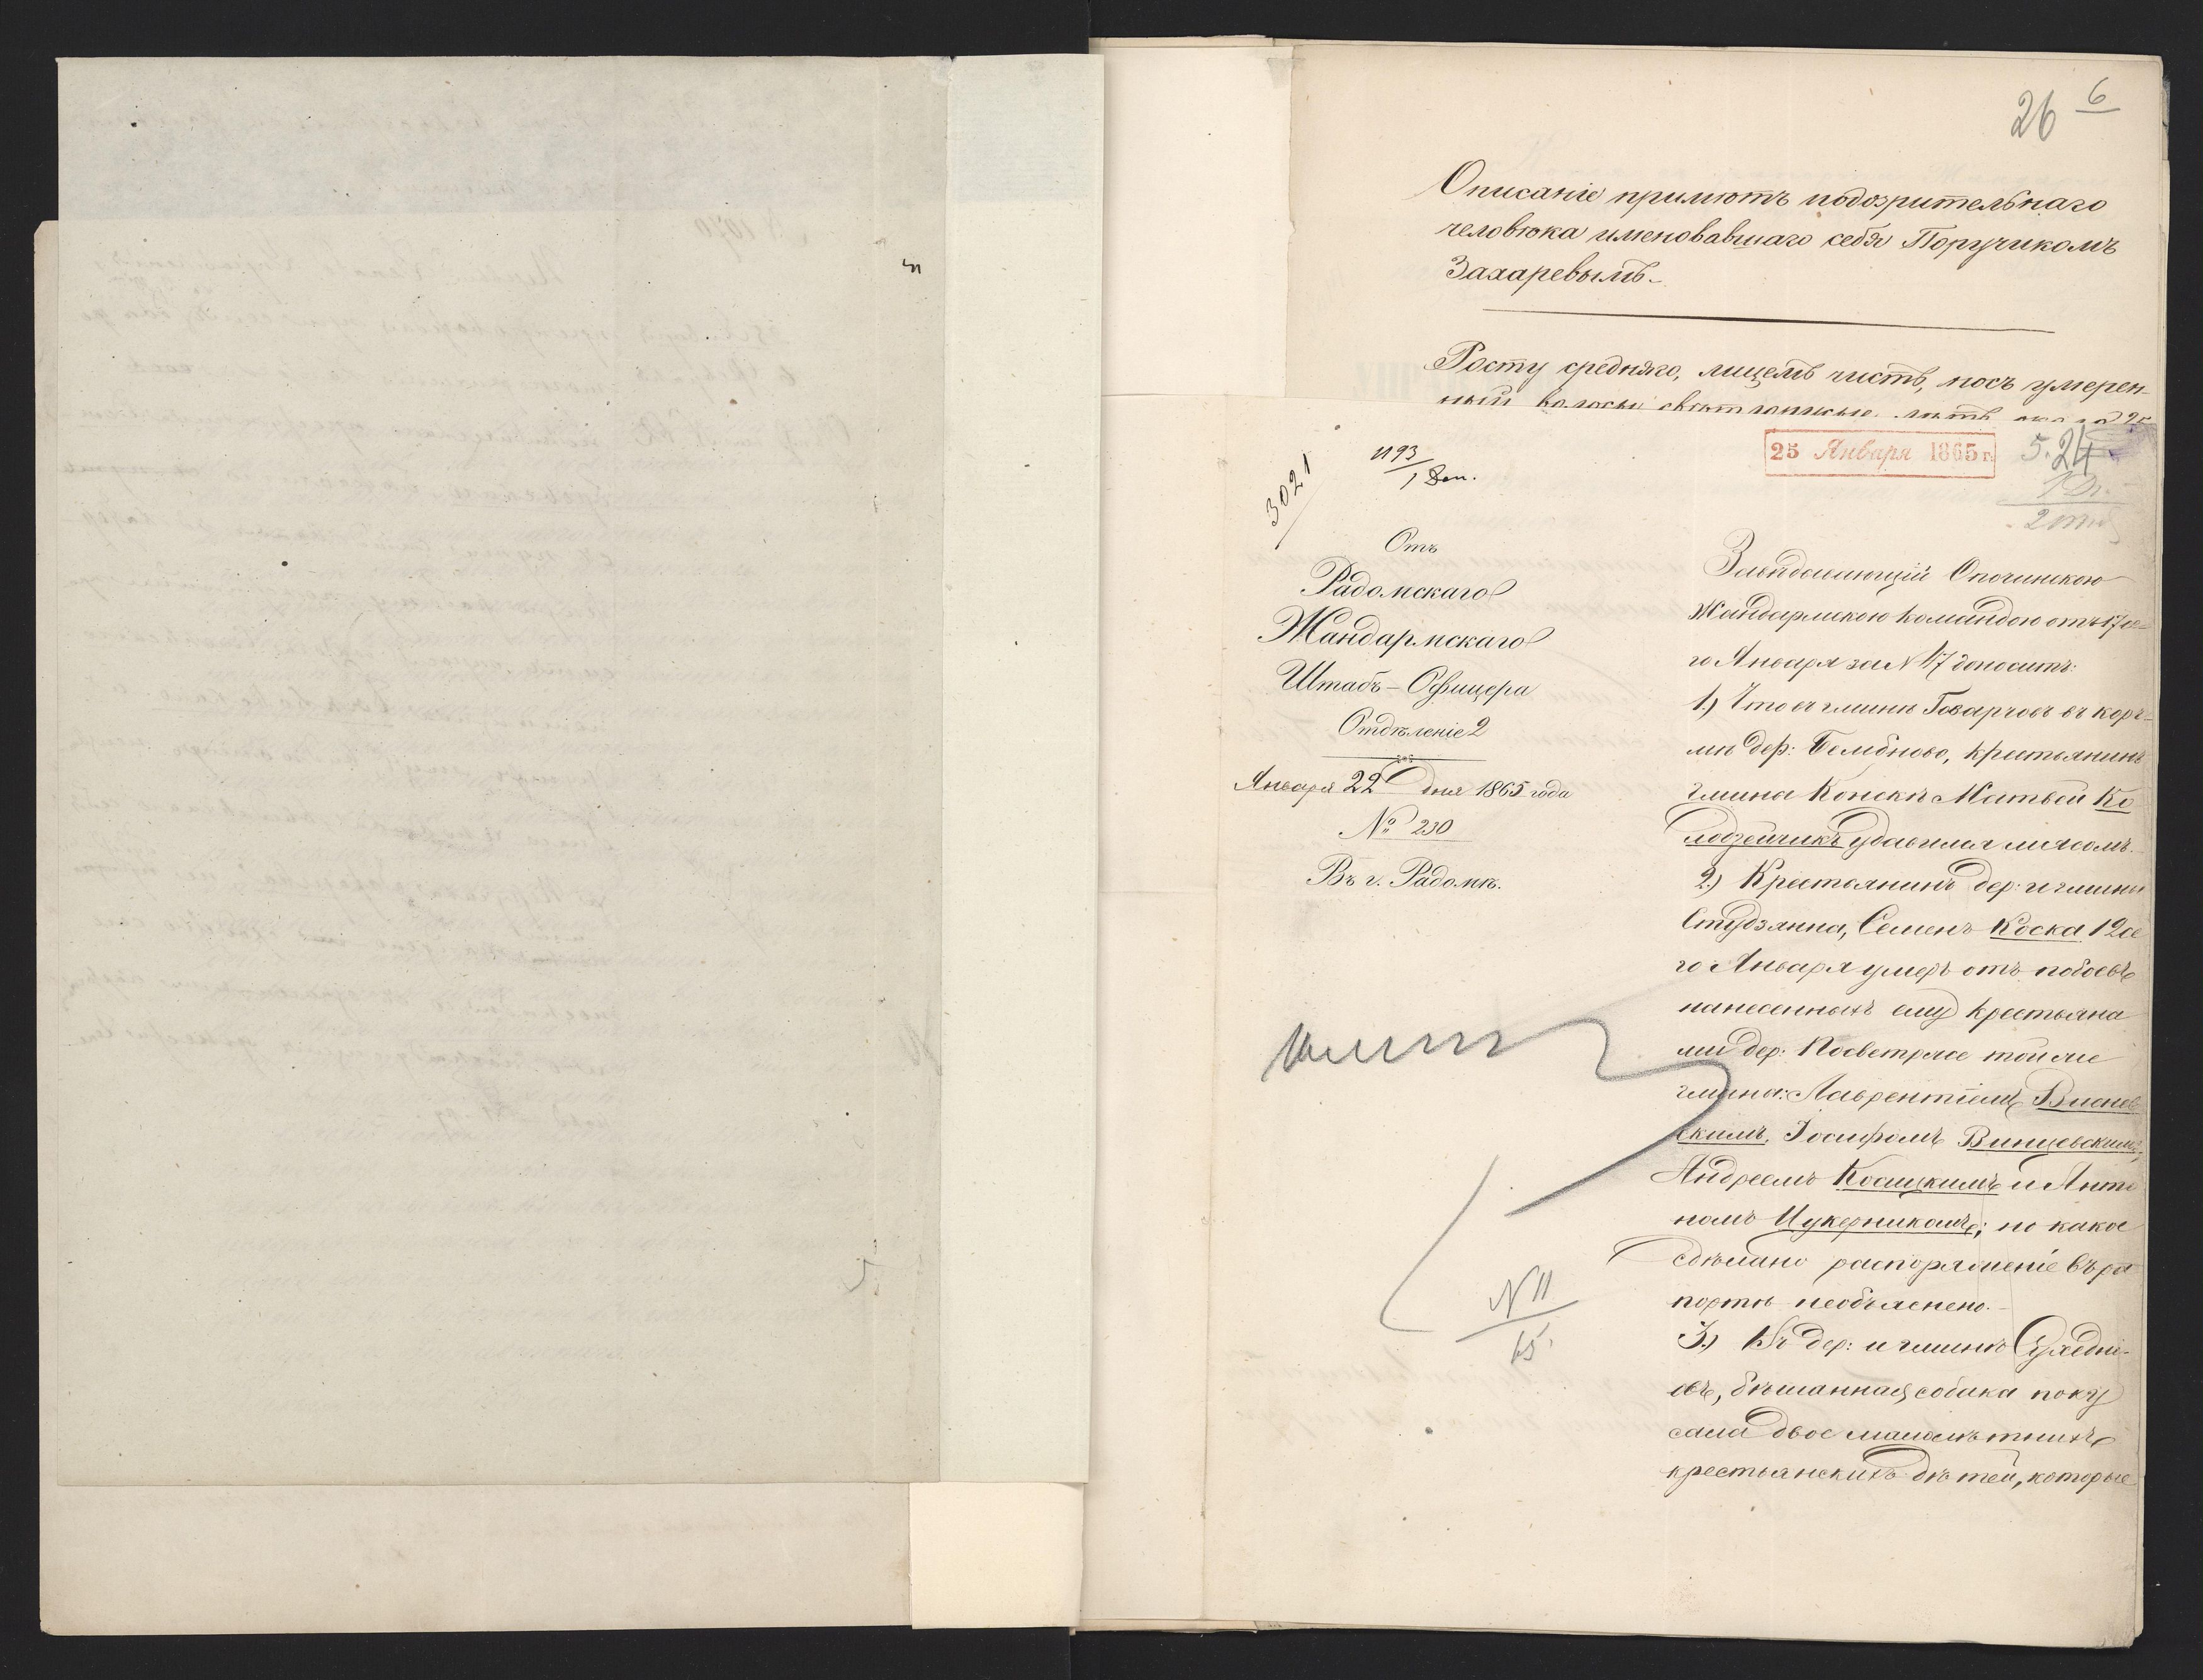 26 6
Описаніе примѣтъ подозрительнаго
человѣка именовавшаго себя Поручикомъ
Захаревымъ.
Росту средняго, лицемъ чистъ, носъ умерен-
ный волосы
25 Января 1865 г.
5. 24
3021
1193
1
Отъ
Радомскаго
Жандармскаго
Штабъ-Офицера
Отдѣленіе 2
Января 22 дня 1865 года
№ 230
Въ г. Радомѣ.
N 11
65.
Завѣдывающій Опочинскою
Жандармскою командою отъ 17
го Января за N 17 доноситъ:
1.) Что въ гминѣ Говарчовъ въ корч-
мѣ дер: крестьянинъ
гмины Конскъ Матвѣй Ко
лодзейчикъ удавился мясомъ.
2.) Крестьянинъ дер: и гмины
Студзянна, Семенъ Коска 12
го Января умеръ отъ побоевъ
нанесенныхъ ему крестьяна
ми дер: той же
гмины: Лаврентіемъ
скимъ, Іосифомъ Винцевскимъ,
Андреемъ и Анто
номъ Цукерникомъ; но какое
сдѣлано распоряженіе въ ра
портѣ необъяснено.
3.) Въ дер: и гминѣ
евъ, бѣшанная собака поку
сала двое малолѣтнихъ
крестьянскихъ дѣтей, которые